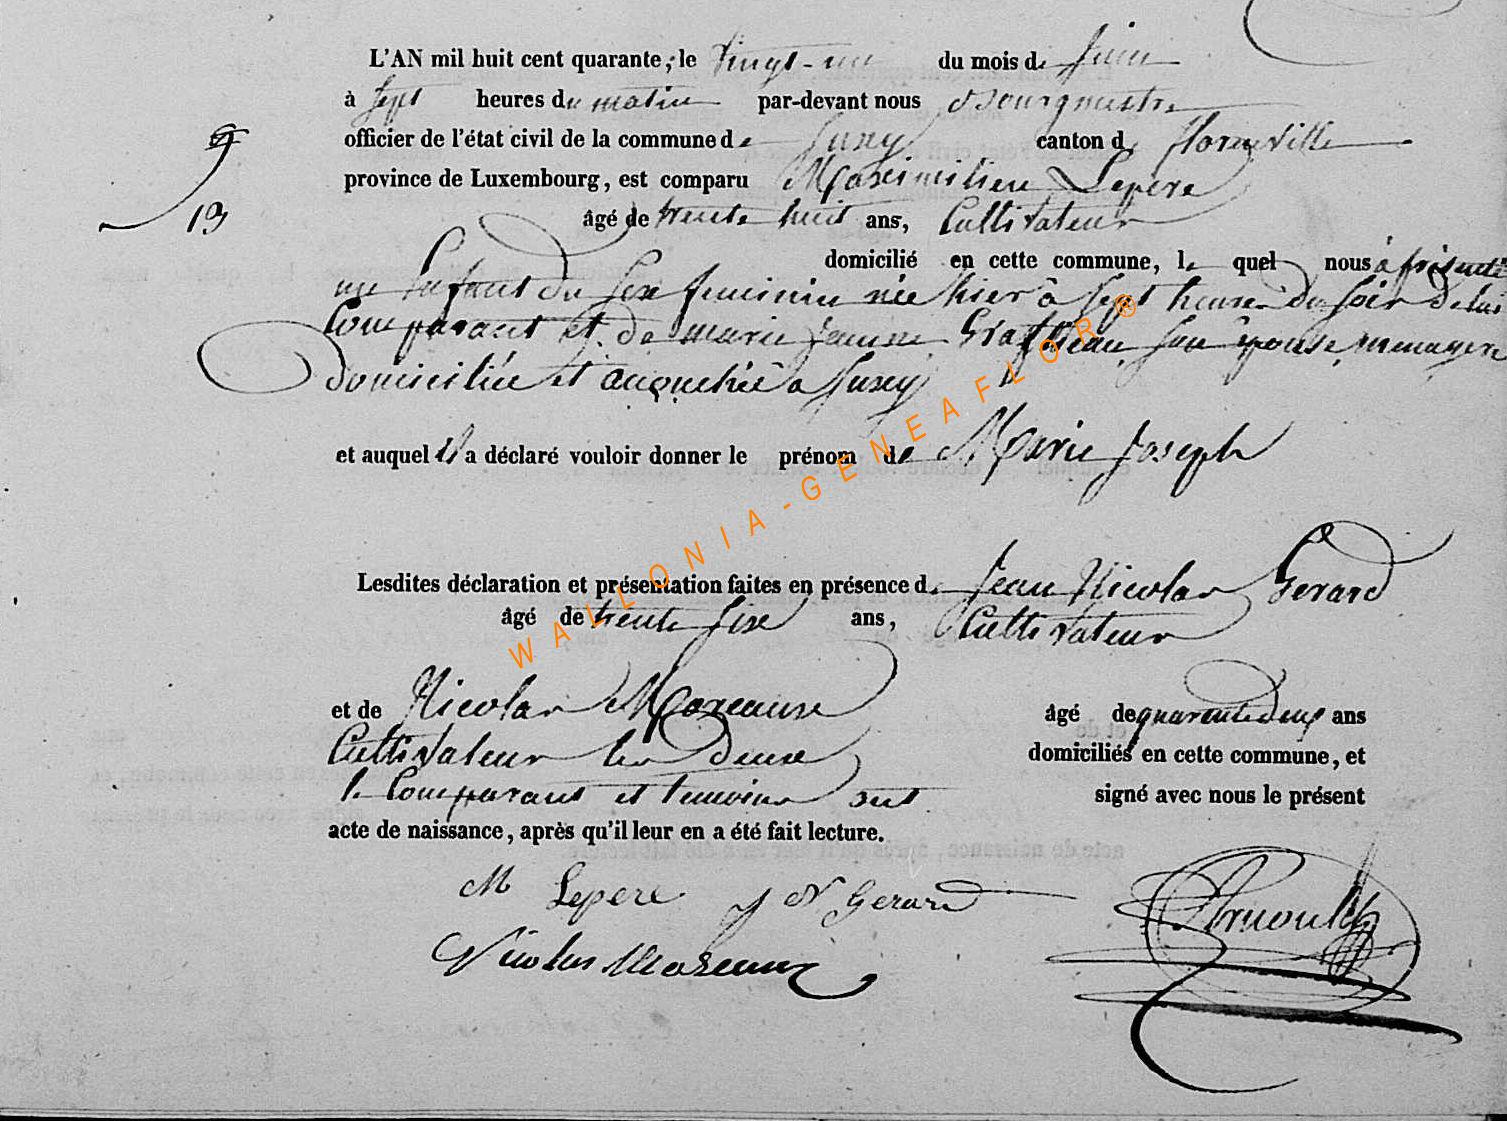 L'AN mil huit cent quarante, le vingt-un du mois de Juin
à Sept heures du matin par-devant nous Bourgmestre
officier de l'état civil de la commune de Suxy canton de florenville
province de Luxembourg, est comparu Maximilien Lepere
9
13
âgé de trente huit ans, Cultivateur
domicilié en cette commune, le quel nous à présenté
un Enfant du sexe feminin née hier à Sept heures du soir de lui
Comparant et de marie Jeanne son épouse menagere
domiciliée et accouchée à Suxy
et auquel il a déclaré vouloir donner le prénom de Marie Joseph
Lesdites déclaration et présentation faites en présence de Jean Nicolas Gerard
âgé de trente Six ans, Cultivateur
et de Nicolas Moreaux âgé de quarente deux ans
Cultivateur les deux domiciliés en cette commune, et
le Comparant et temoins ont signé avec nous le présent
acte de naissance, après qu'il leur en a été fait lecture.
M Lepere J N Gerard
Arnould
Nicolas Moreaux
WALLONIA-GENEAFLOR®